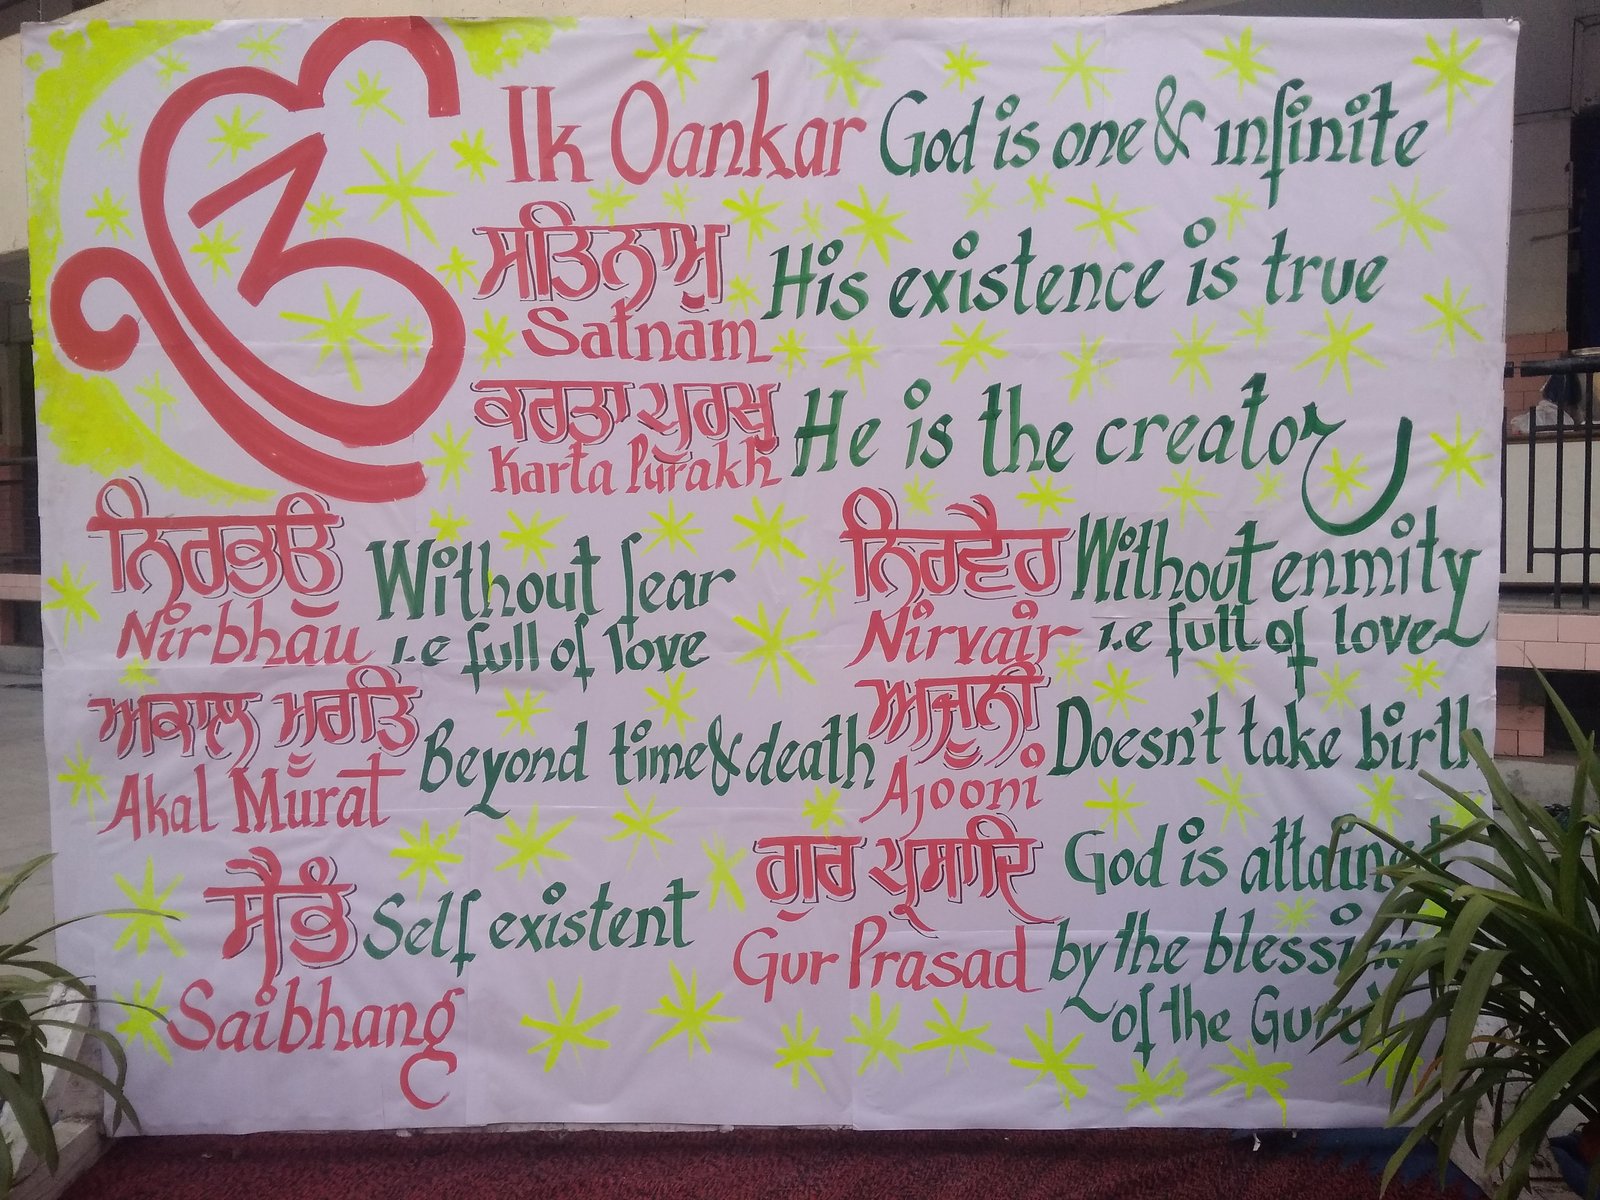 ੴ Ik Oankar God is one & infinite
ਸਤਿਨਾਮੁ
Satnam His existence is true
ਕਰਤਾ ਪੁਰਖੁ
Karta Purakh He is the creator
ਨਿਰਭਉ Without fear
Nirbhau i.e full of love
ਨਿਰਵੈਰੁ Without enmity
Nirvair i.e full of love
ਅਕਾਲ ਮੂਰਤਿ
Akal Mūrat Beyond time & death
ਅਜੂਨੀ
Ajooni Doesn't take birth
ਸੈਭੰ Self existent
Saibhang
ਗੁਰ ਪ੍ਰਸਾਦਿ God is attained
Gur Prasad by the blessing
of the Guru